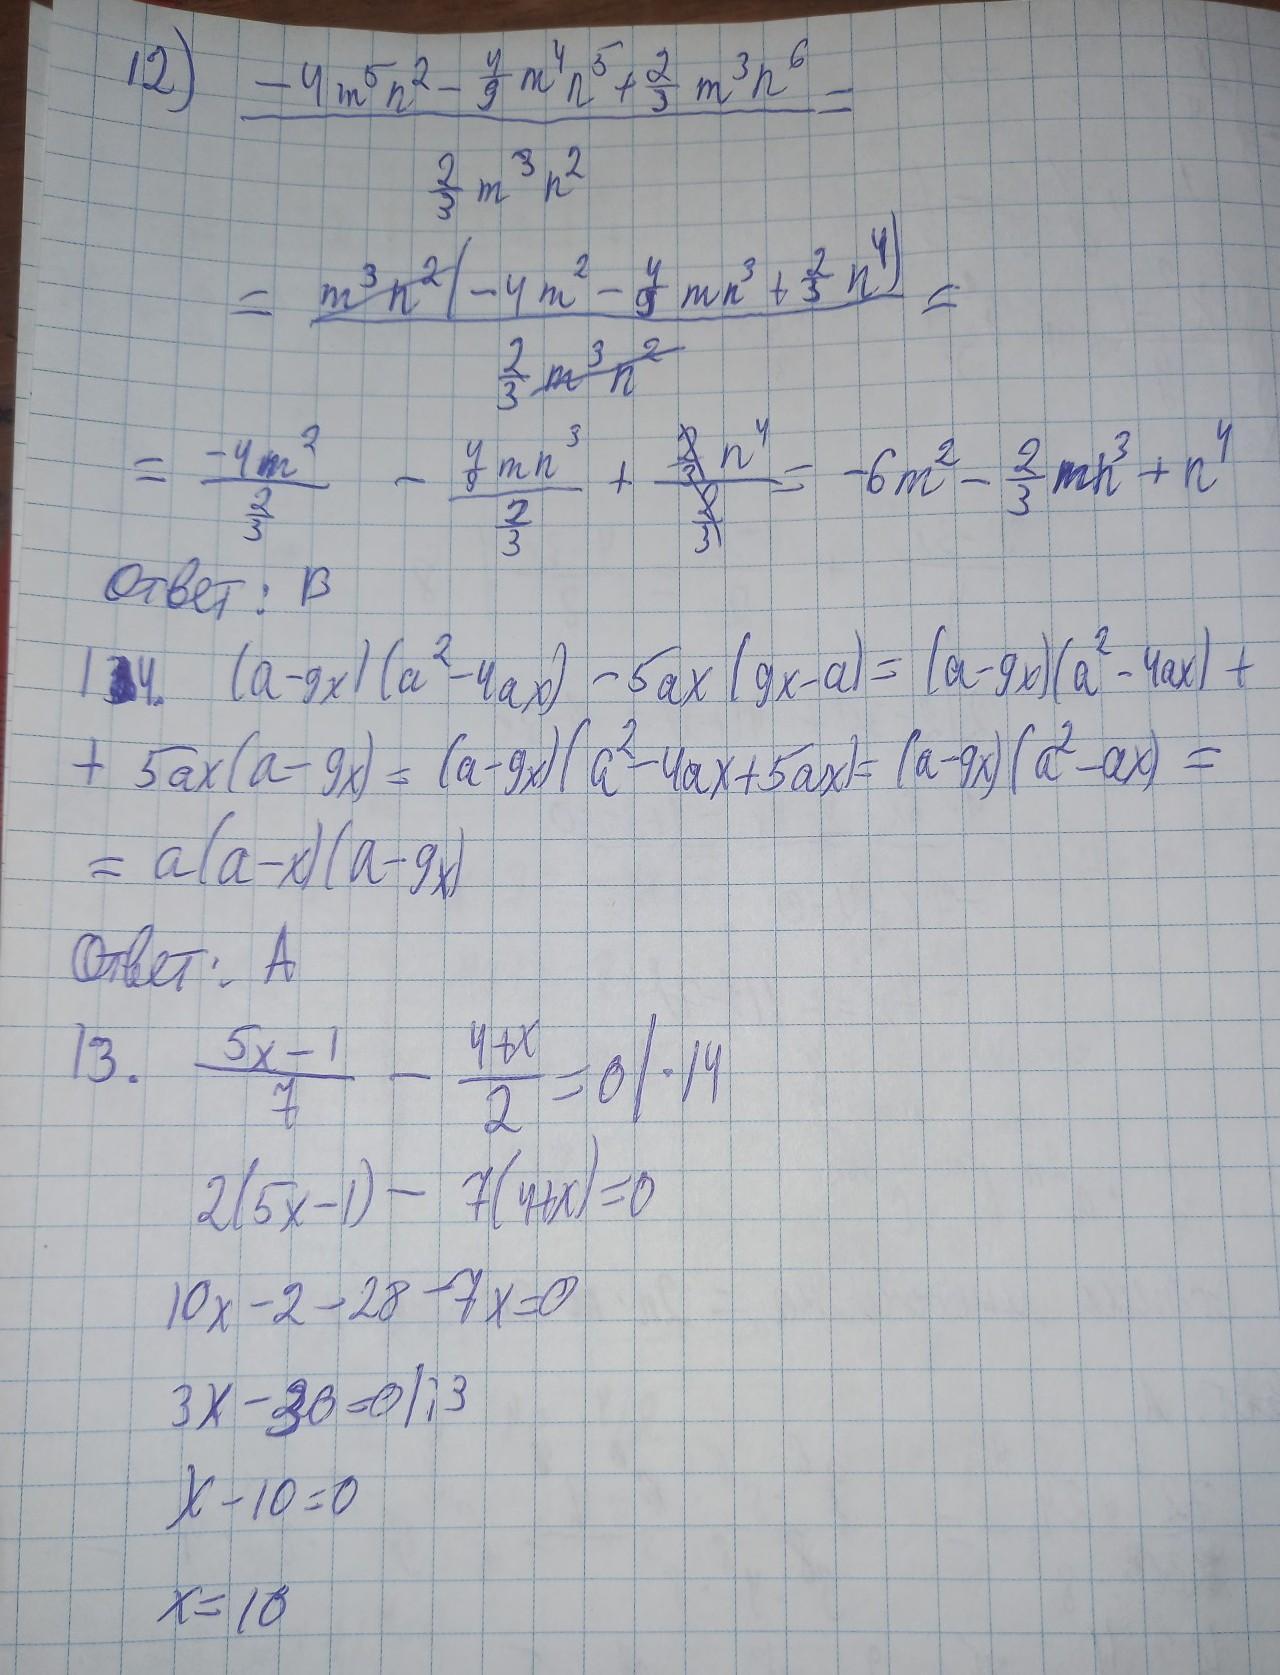 12) (-4m⁵n² - 4/9 m⁴n⁵ + 2/3 m³n⁶) / (2/3 m³n²) =
= m³n²(-4m² - 4/9 mn³ + 2/3 n⁴) / (2/3 m³n²) =
= -4m² / (2/3) - 4/9 mn³ / (2/3) + 2/3 n⁴ / (2/3) = -6m² - 2/3 mn³ + n⁴
Ответ: В
14. (a-9x)(a²-4ax) - 5ax(9x-a) = (a-9x)(a²-4ax) +
+ 5ax(a-9x) = (a-9x)(a²-4ax+5ax) = (a-9x)(a²-ax) =
= a(a-x)(a-9x)
Ответ: А
13. (5x-1)/7 - (4+x)/2 = 0 | ·14
2(5x-1) - 7(4+x) = 0
10x - 2 - 28 - 7x = 0
3x - 30 = 0 | :3
x - 10 = 0
x = 10